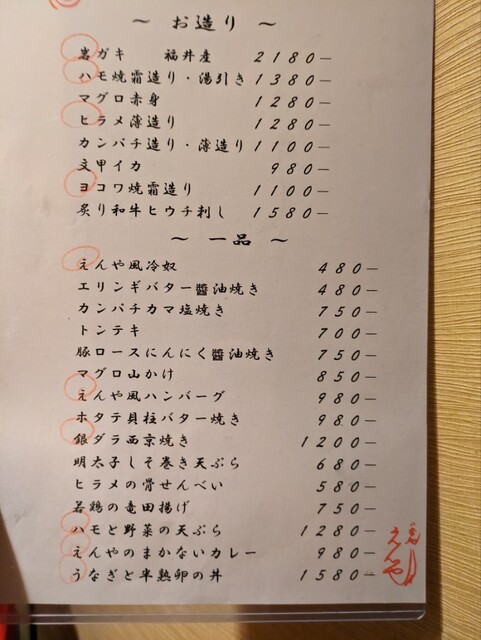 ～ お造り ～
岩ガキ 福井産 2180―
ハモ焼霜造り・湯引き 1380―
マグロ赤身 1280―
ヒラメ薄造り 1280―
カンパチ造り・薄造り 1100―
文甲イカ 980―
ヨコワ焼霜造り 1100―
炙り和牛ヒウチ刺し 1580―
～ 一品 ～
えんや風冷奴 480―
エリンギバター醬油焼き 480―
カンパチカマ塩焼き 750―
トンテキ 700―
豚ロースにんにく醬油焼き 750―
マグロ山かけ 850―
えんや風ハンバーグ 980―
ホタテ貝柱バター焼き 980―
銀ダラ西京焼き 1200―
明太子しそ巻き天ぷら 680―
ヒラメの骨せんべい 580―
若鶏の竜田揚げ 750―
ハモと野菜の天ぷら 1280―
えんやのまかないカレー 980―
うなぎと半熟卵の丼 1580―
えんや